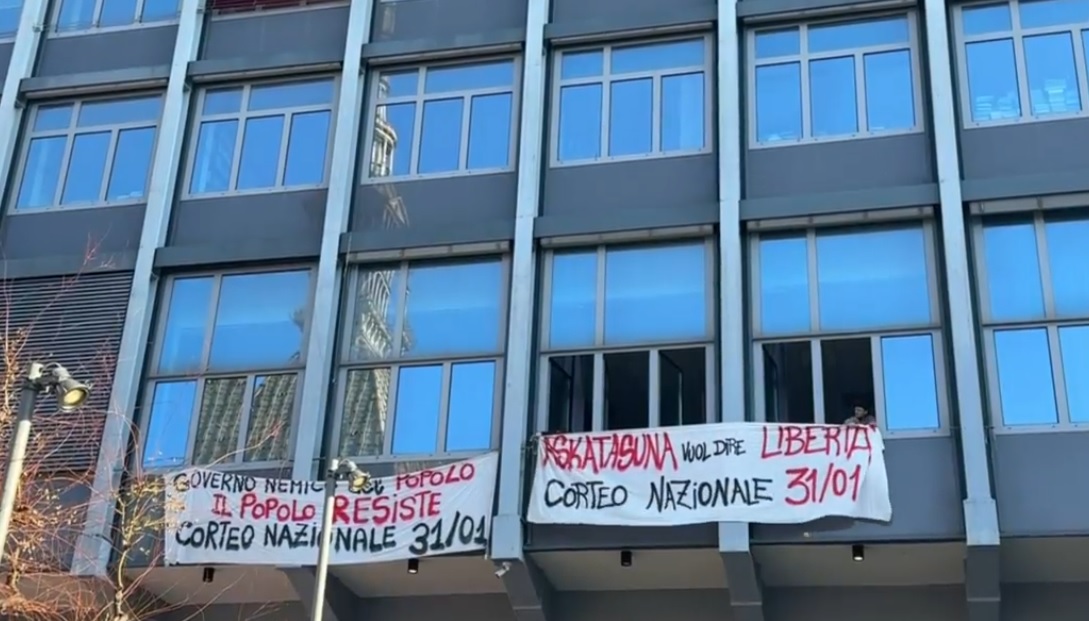 GOVERNO NEMICO DEL POPOLO
IL POPOLO RESISTE
CORTEO NAZIONALE 31/01
ASKATASUNA VUOL DIRE LIBERTÀ
CORTEO NAZIONALE 31/01